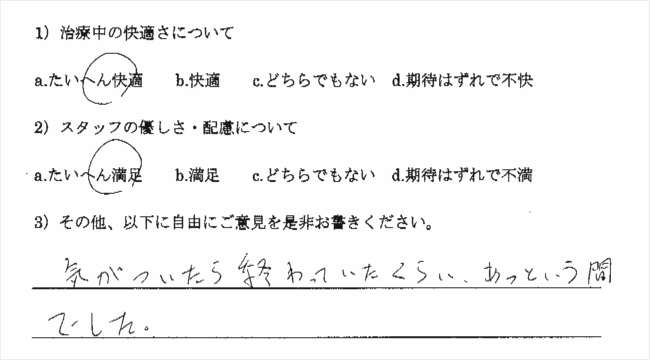 1）治療中の快適さについて
a.たいへん快適　　b.快適　　c.どちらでもない　d.期待はずれで不快
2）スタッフの優しさ・配慮について
a.たいへん満足　　b.満足　　c.どちらでもない　d.期待はずれで不満
3）その他、以下に自由にご意見を是非お書きください。
気がついたら終わっていたくらい、あっという間
でした。